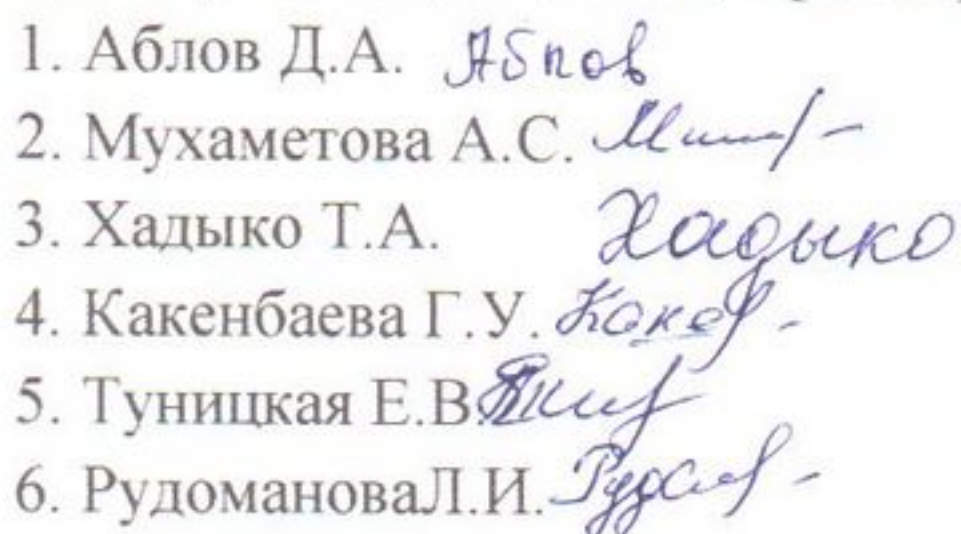 1. Аблов Д.А. Аблов
2. Мухаметова А.С.
3. Хадыко Т.А. Хадыко
4. Какенбаева Г.У.
5. Туницкая Е.В.
6. РудомановаЛ.И.